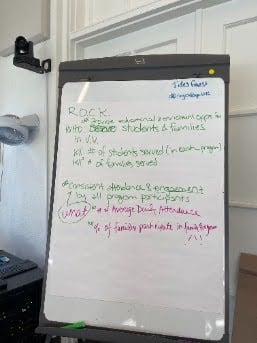 Tides Guest
R.O.C.K.
Provide educational & enrichment opps for
students & families
in V.V.
# of students served (in each program)
# of families served
*Consistent attendance & engagement
by all program participants
what
# of Average Daily Attendance
% of families participate in